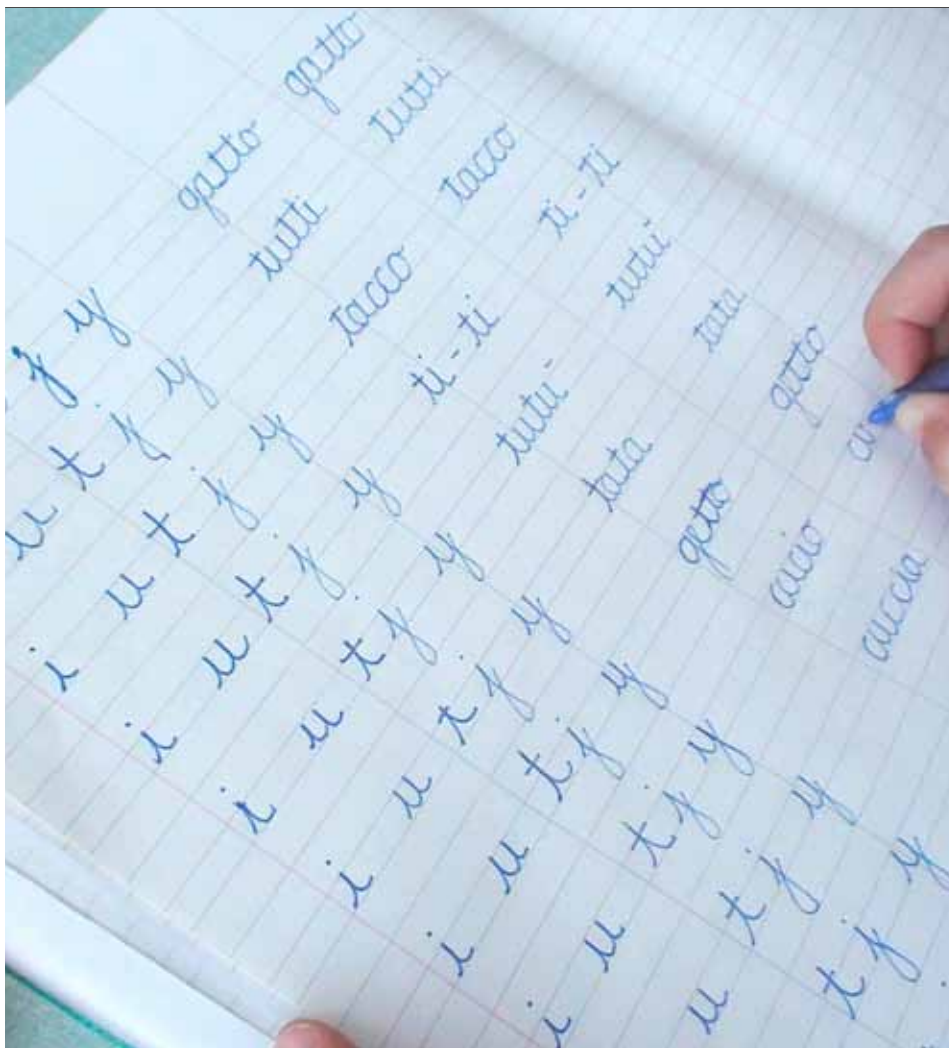 j y gatto gatto
u t j y tutti tutti
i u t j y tacco tacco
i u t j y ti-ti ti-ti
i u t j y tutù- tutù
i u t j y tata tata
i u t j y getto getto
i u t j y cucio cu
u t j y cuccia
t j y